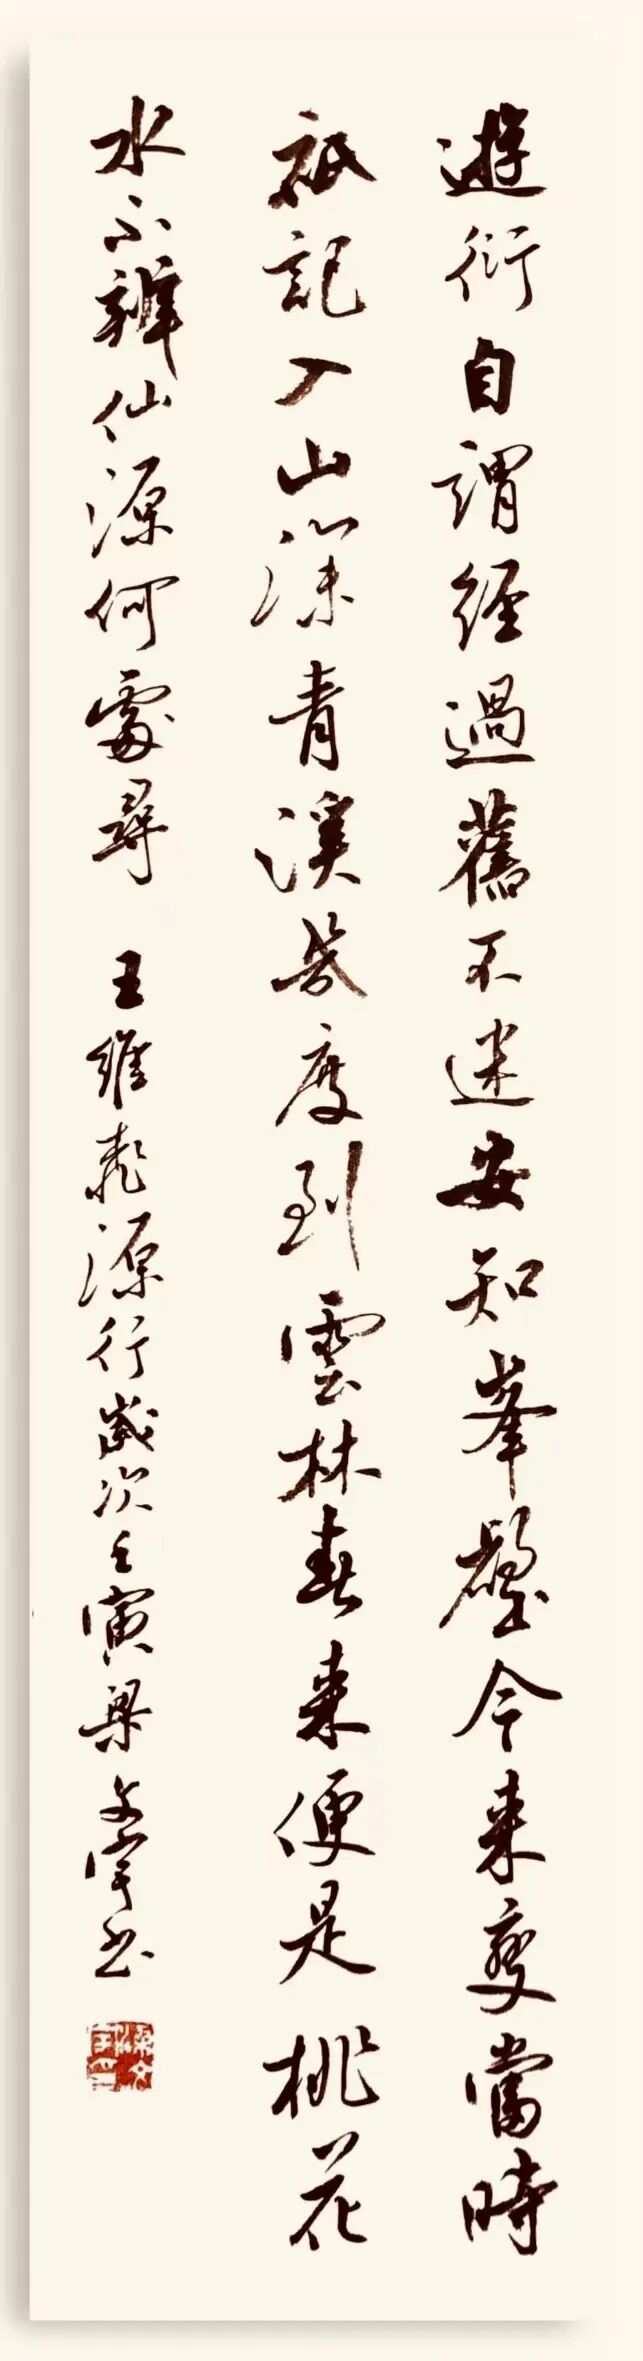 遊衍自謂經過舊不迷安知峯壑今來變當時
祇記入山深青溪幾度到雲林春來便是桃花
水不辨仙源何處尋 王維桃源行歲次壬寅梁文宇书
梁文宇印